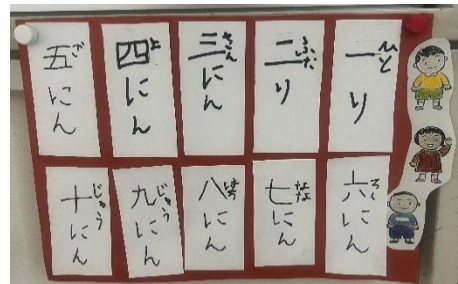 一ひとり
二ふたり
三さんにん
四よにん
五ごにん
六ろくにん
七ななにん
八はちにん
九にん
十じゅうにん